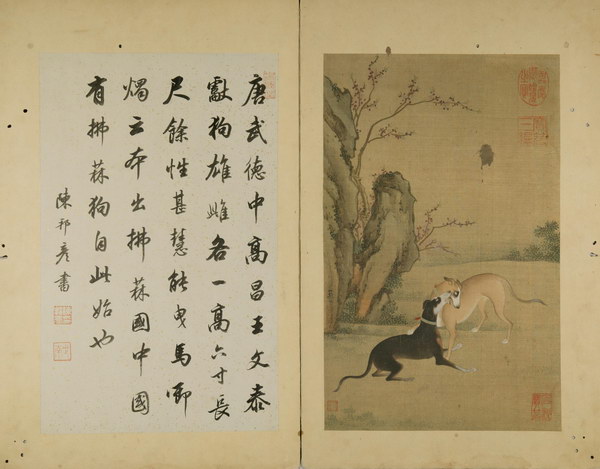 唐武德中高昌王文泰
獻狗雄雌各一高六寸長
尺餘性甚慧能曳馬啣
燭云本出拂菻國中國
有拂菻狗自此始也
陳邦彥書